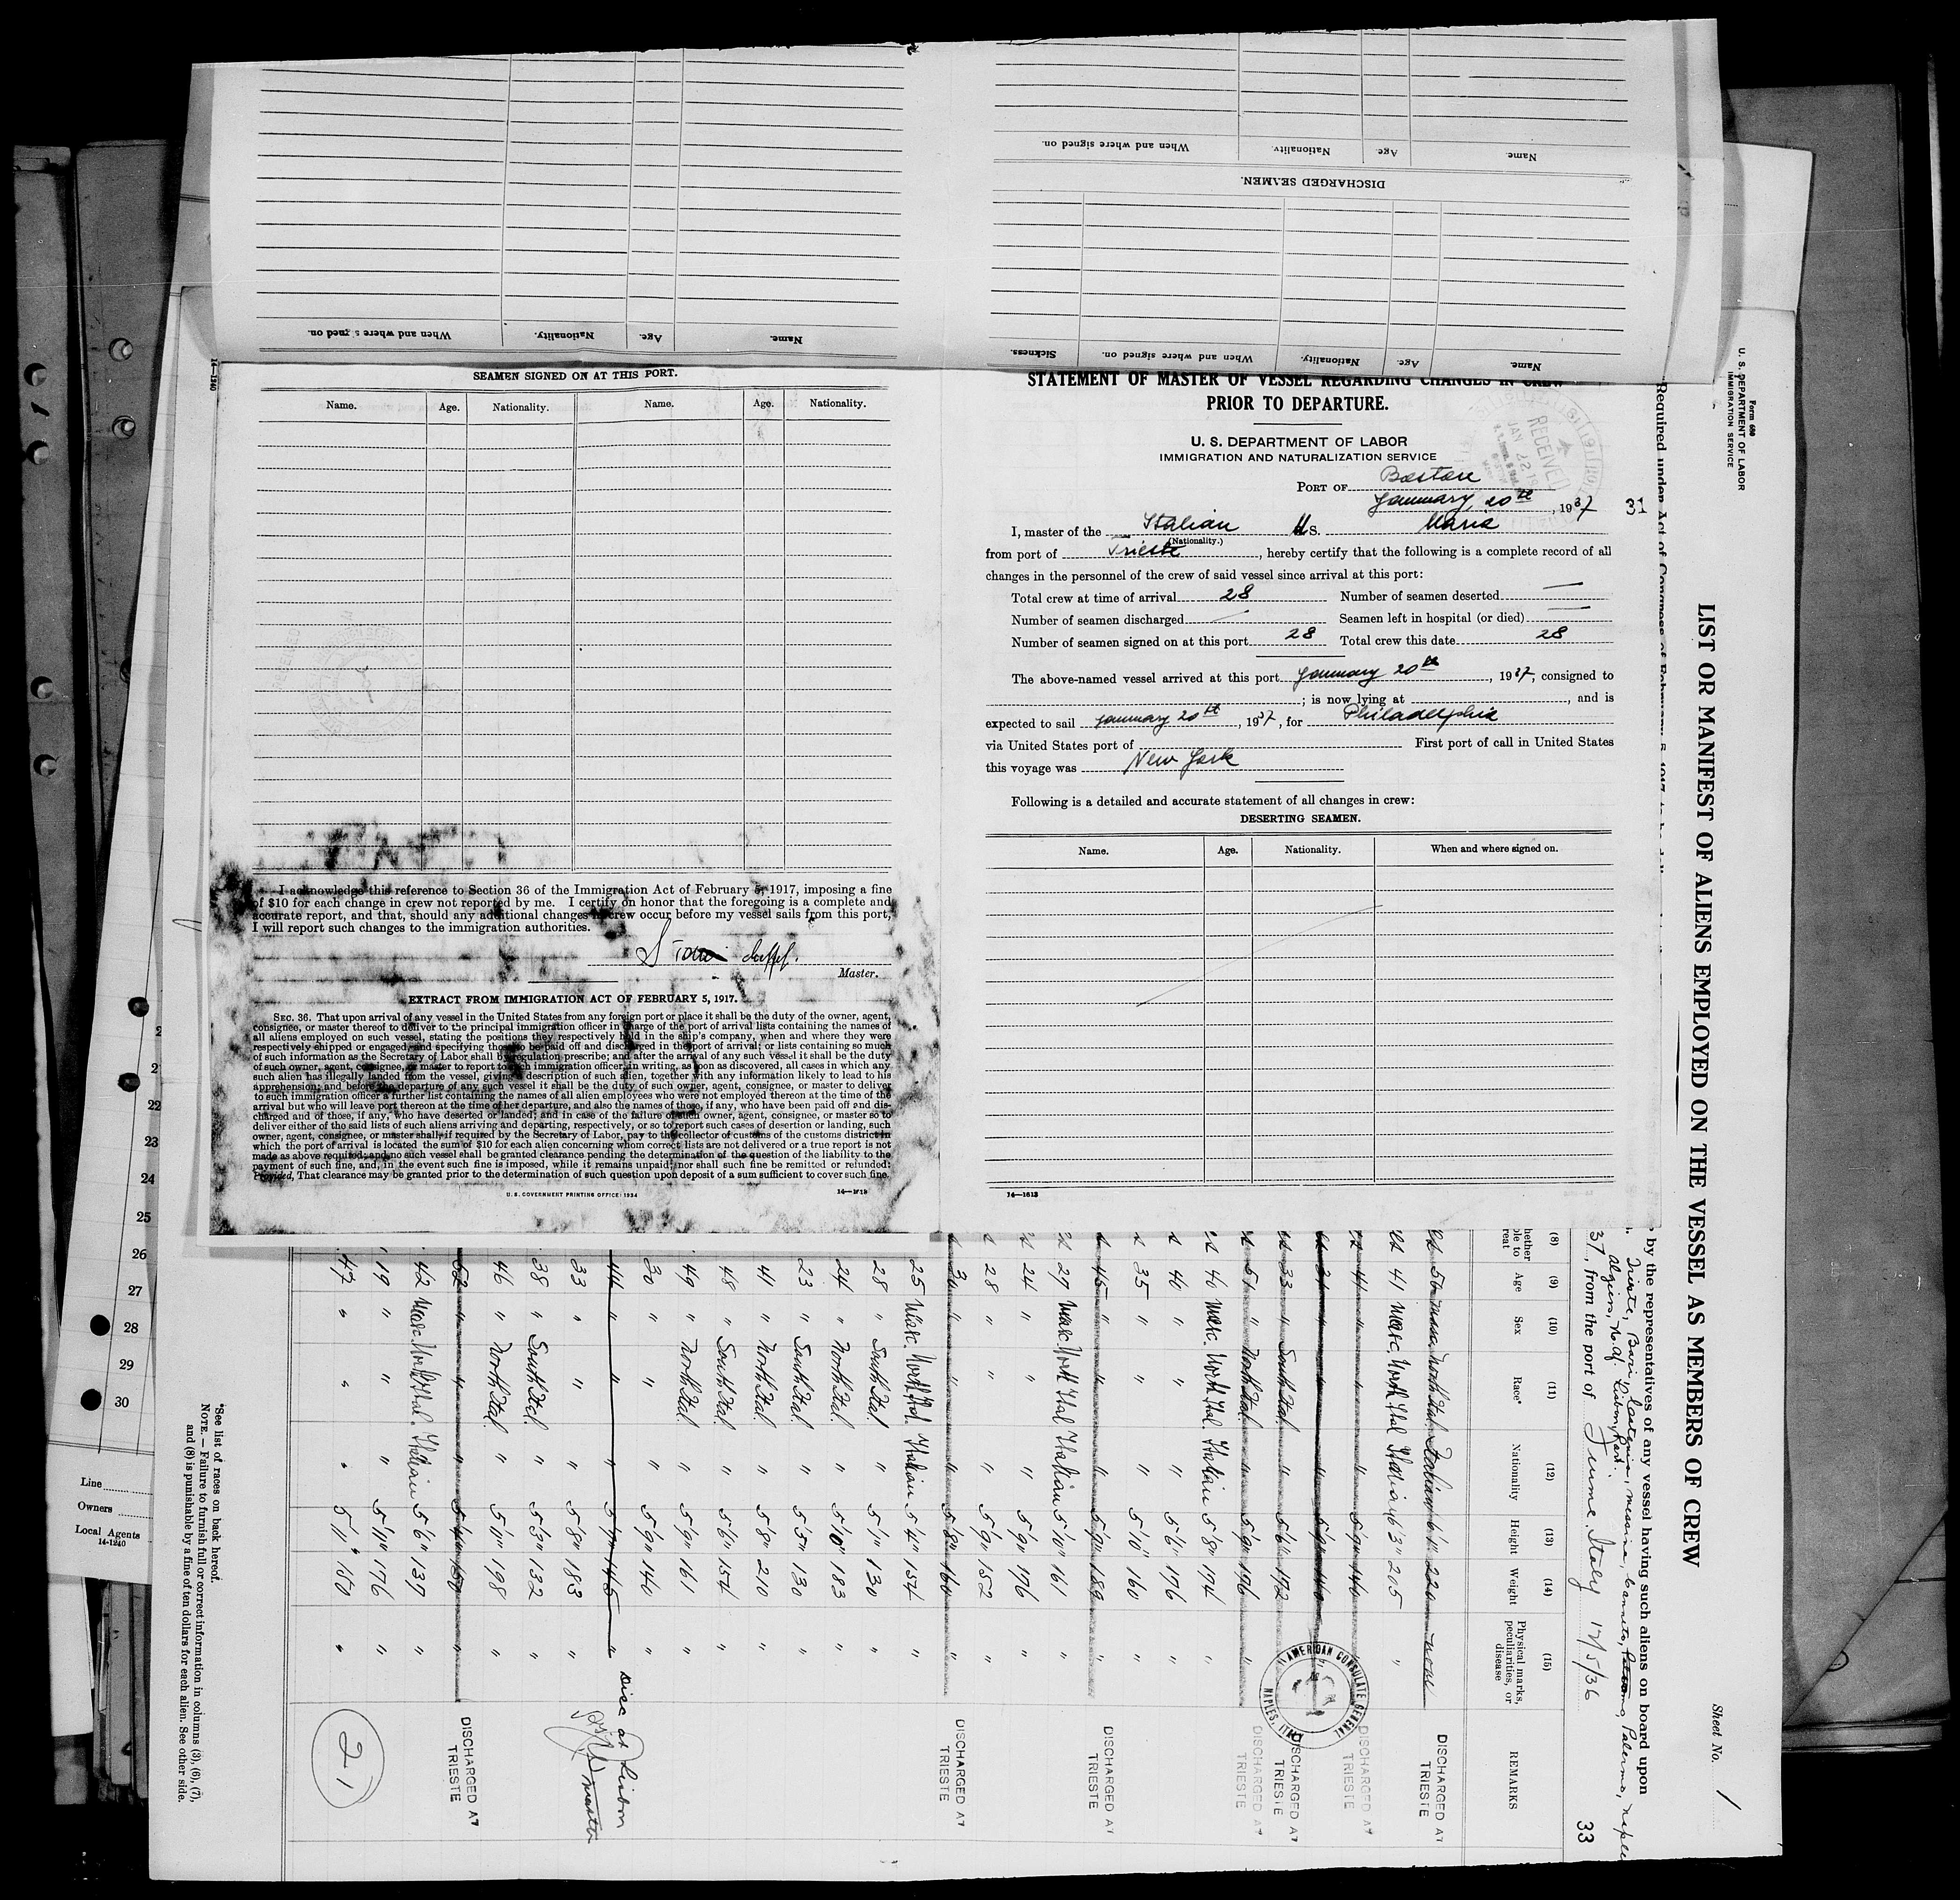 When and where signed on.
Nationality.
Age.
Name.
DISCHARGED SEAMEN.
Sickness.
When and where signed on.
Nationality.
Age.
Name.
When and where signed on.
Nationality.
Age.
Name.
14—1240
SEAMEN SIGNED ON AT THIS PORT.
Name. Age. Nationality. Name. Age. Nationality.
I acknowledge this reference to Section 36 of the Immigration Act of February 5, 1917, imposing a fine
of $10 for each change in crew not reported by me. I certify on honor that the foregoing is a complete and
accurate report, and that, should any additional changes in crew occur before my vessel sails from this port,
I will report such changes to the immigration authorities.
Master.
EXTRACT FROM IMMIGRATION ACT OF FEBRUARY 5, 1917.
SEC. 36. That upon arrival of any vessel in the United States from any foreign port or place it shall be the duty of the owner, agent,
consignee, or master thereof to deliver to the principal immigration officer in charge of the port of arrival lists containing the names of
all aliens employed on such vessel, stating the positions they respectively hold in the ship's company, when and where they were
respectively shipped or engaged, and specifying those to be paid off and discharged in the port of arrival; or lists containing so much
of such information as the Secretary of Labor shall by regulation prescribe; and after the arrival of any such vessel it shall be the duty
of such owner, agent, consignee, or master to report to such immigration officer, in writing, as soon as discovered, all cases in which any
such alien has illegally landed from the vessel, giving a description of such alien, together with any information likely to lead to his
apprehension; and before the departure of any such vessel it shall be the duty of such owner, agent, consignee, or master to deliver
to such immigration officer a further list containing the names of all alien employees who were not employed thereon at the time of the
arrival but who will leave port thereon at the time of her departure, and also the names of those, if any, who have been paid off and dis-
charged and of those, if any, who have deserted or landed; and in case of the failure of such owner, agent, consignee, or master so to
deliver either of the said lists of such aliens arriving and departing, respectively, or so to report such cases of desertion or landing, such
owner, agent, consignee, or master shall, if required by the Secretary of Labor, pay to the collector of customs of the customs district in
which the port of arrival is located the sum of $10 for each alien concerning whom correct lists are not delivered or a true report is not
made as above required; and no such vessel shall be granted clearance pending the determination of the question of the liability to the
payment of such fine, and, in the event such fine is imposed, while it remains unpaid; nor shall such fine be remitted or refunded:
Provided, That clearance may be granted prior to the determination of such question upon deposit of a sum sufficient to cover such fine.
U. S. GOVERNMENT PRINTING OFFICE: 1934
STATEMENT OF MASTER OF VESSEL REGARDING CHANGES IN CREW
PRIOR TO DEPARTURE.
U. S. DEPARTMENT OF LABOR
IMMIGRATION AND NATURALIZATION SERVICE
RECEIVED
JAN 22
PORT OF Boston
January 20th, 1937
31
I, master of the Italian S. Maria
(Nationality.)
from port of Trieste, hereby certify that the following is a complete record of all
changes in the personnel of the crew of said vessel since arrival at this port:
Total crew at time of arrival 28 Number of seamen deserted —
Number of seamen discharged — Seamen left in hospital (or died) —
Number of seamen signed on at this port 28 Total crew this date 28
The above-named vessel arrived at this port January 20th, 1937, consigned to
; is now lying at , and is
expected to sail January 20th, 1937, for Philadelphia
via United States port of First port of call in United States
this voyage was New York
Following is a detailed and accurate statement of all changes in crew:
DESERTING SEAMEN.
Name. Age. Nationality. When and where signed on.
14—1613
Form 680
U. S. DEPARTMENT OF LABOR
IMMIGRATION SERVICE
LIST OR MANIFEST OF ALIENS EMPLOYED ON THE VESSEL AS MEMBERS OF CREW
Sheet No. 1
Required under Act of Congress of February 5, 1917
by the representatives of any vessel having such aliens on board upon
Trieste, Bari, Catania, Messina, Palermo,
Algiers, Lisbon
37, from the port of Fiume Italy 12/5/36
33
(8) (9) (10) (11) (12) (13) (14) (15)
Age Sex Race* Nationality Height Weight Physical marks, peculiarities, or disease REMARKS
56 North Ital Italian 6'1" 220 DISCHARGED AT TRIESTE
41 Masc. North Ital Italian 6'3" 205 "
44 " " " 5'9" 144 " DISCHARGED AT TRIESTE
31 " " " 5'9" 140
33 " South Ital " 5'6" 172 DISCHARGED AT TRIESTE
51 " North Ital " 5'9" 196 " DISCHARGED AT TRIESTE
40 Masc. North Ital. Italian 5'8" 174 "
40 " " " 5'6" 176 "
35 " " " 5'10" 160 "
45 " " " 5'9" 189 " DISCHARGED AT TRIESTE
27 Masc. North Ital Italian 5'10" 161 "
24 " " " 5'9" 176 "
28 " " " 5'9" 152 "
34 " " " 5'8" 164 " DISCHARGED AT TRIESTE
25 Masc. North Ital. Italian 5'4" 154 "
28 " South Ital. " 5'7" 130 "
24 " North Ital. " 5'10" 183 "
23 " South Ital. " 5'5" 130 "
41 " North Ital. " 5'8" 210 "
48 " South Ital " 5'6" 154 "
49 " North Ital. " 5'9" 161 "
30 " " " 5'9" 140 "
44 " " " 5'7" 145 " Disc at Lisbon
33 " " " 5'8" 183 "
38 " South Ital. " 5'3" 132 "
46 " North Ital. " 5'11" 198 "
52 " " " 5'4" 150 " DISCHARGED AT TRIESTE
42 Masc. North Ital. Italian 5'6" 137 "
19 " " " 5'11" 176 "
47 " " " 5'11" 150 "
21
AMERICAN CONSULATE GENERAL
NAPLES, ITALY
*See list of races on back hereof.
NOTE.—Failure to furnish full or correct information in columns (3), (6), (7),
and (8) is punishable by a fine of ten dollars for each alien. See other side.
21
22
23
24
25
26
27
28
29
30
Line
Owners
Local Agents
14-1240